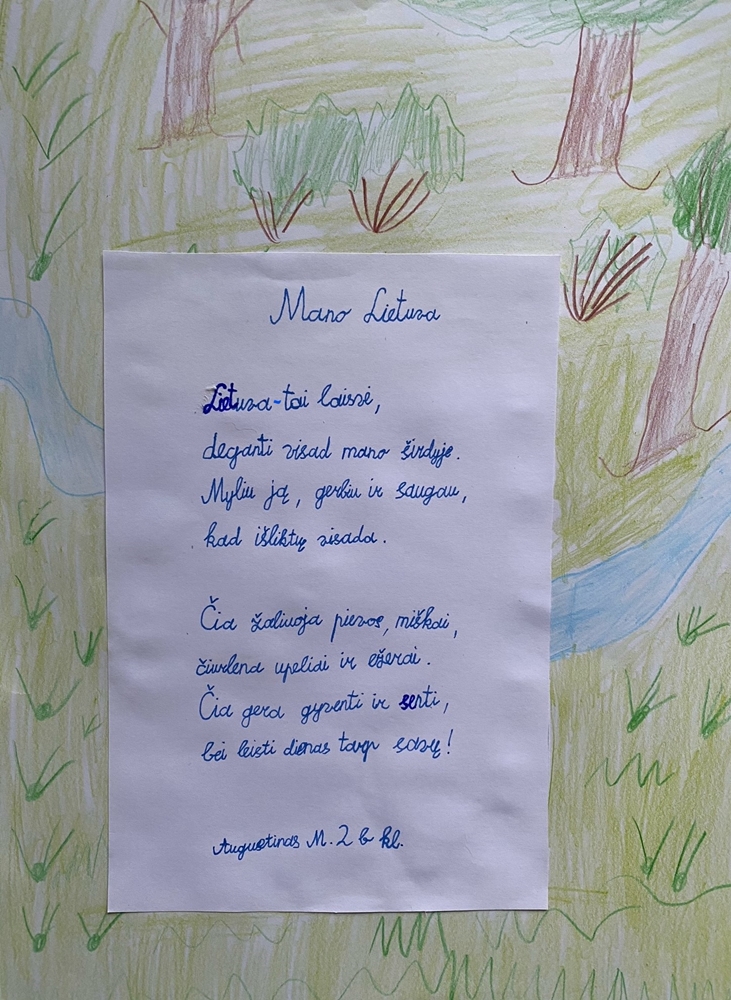 Mano Lietuva
Lietuva-tai laisvė,
deganti visad mano širdyje.
Myliu ją, gerbiu ir saugau,
kad išliktų visada.
Čia žaliuoja pievos, miškai,
čiurlena upeliai ir ežerai.
Čia gera gyventi ir senti,
bei leisti dienas tarp savų!
Augustinas M. 2 b kl.